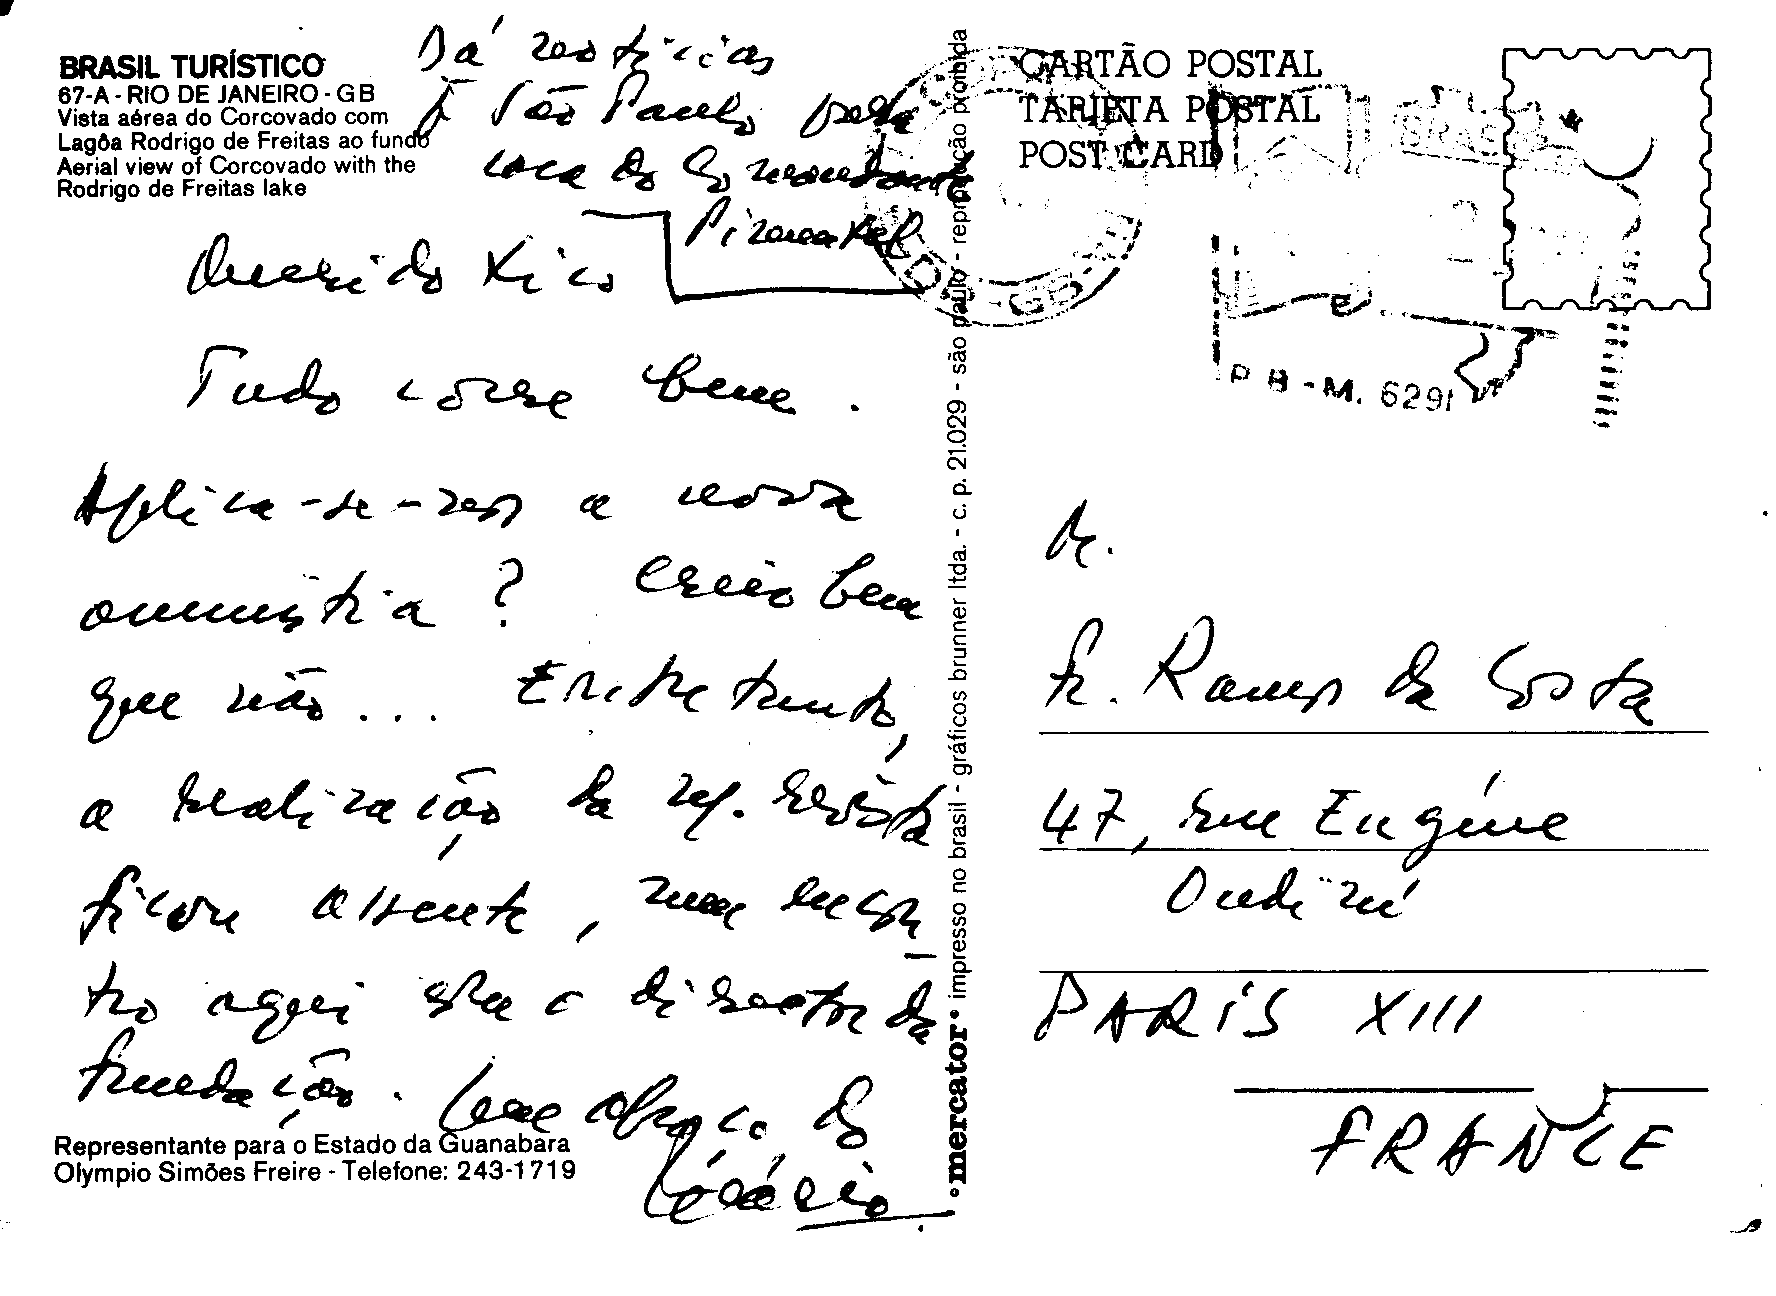 BRASIL TURÍSTICO
67-A - RIO DE JANEIRO - GB
Vista aérea do Corcovado com
Lagôa Rodrigo de Freitas ao fundo
Aerial view of Corcovado with the
Rodrigo de Freitas lake
Dá notícias
P/ São Paulo pela
casa do Comandante
Pimentel
Querido Xico
Tudo corre bem.
Aplica-se-nos a nova
amnistia? Creio bem
que não... Entretanto,
a realização da
ficou assente, num encon-
tro aqui o director da
Fundação. Um abraço do
Representante para o Estado da Guanabara
Olympio Simões Freire - Telefone: 243-1719
•mercator• impresso no brasil - gráficos brunner ltda. - c. p. 21.029 - são paulo - reprodução proibida
CARTÃO POSTAL
TARJETA POSTAL
POST CARD
BRASIL
GB
P B - M. 6291
M.
Fr. Ramos da Costa
47, rue Eugène
Oudiné
PARIS XIII
FRANCE